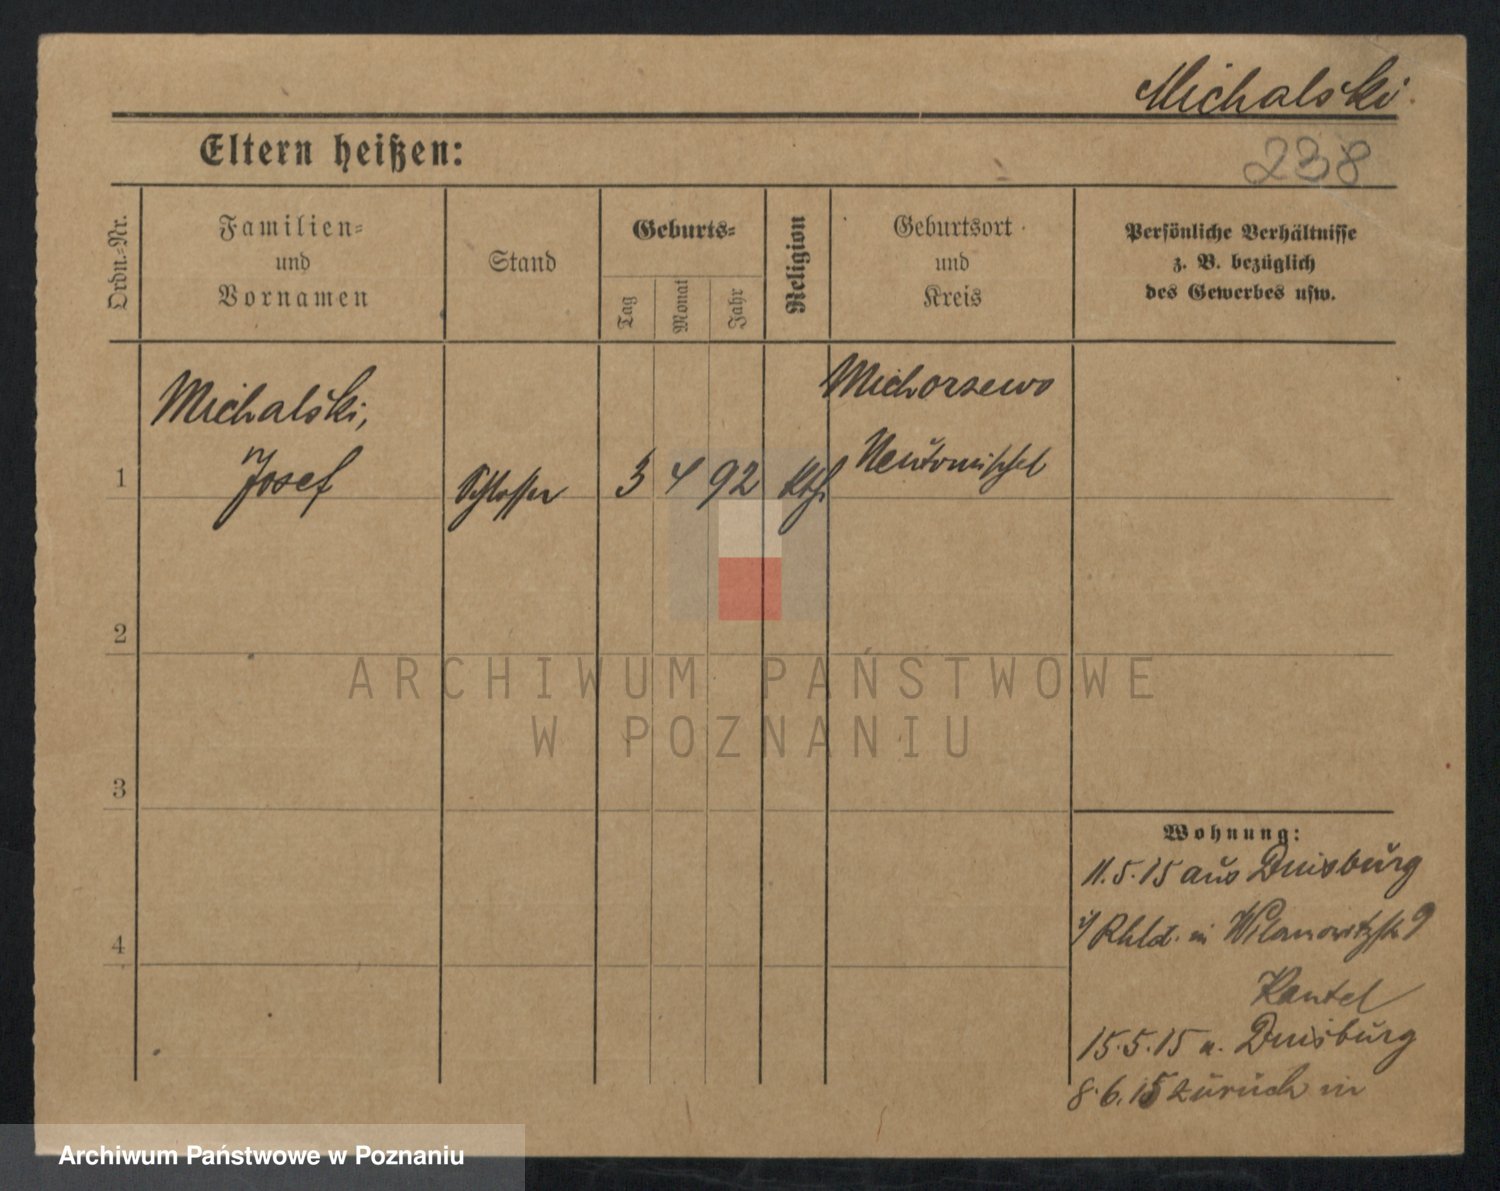 Michalski
238
Eltern heißen:
Ordn.=Nr.
Familien=
und
Vornamen
Stand
Geburts=
Tag
Monat
Jahr
Religion
Geburtsort
und
Kreis
Persönliche Verhältnisse
z. B. bezüglich
des Gewerbes usw.
1
Michalski,
Josef
Schlosser
3
4
92
kth.
Michorzewo
Neutomischel
2
3
4
Wohnung:
11.5.15 aus Duisburg
i/ Rhld. in Wilamowitzstr 9
Kantel
15.5.15 n. Duisburg
8.6.15 zurück in
ARCHIWUM PAŃSTWOWE
W POZNANIU
Archiwum Państwowe w Poznaniu